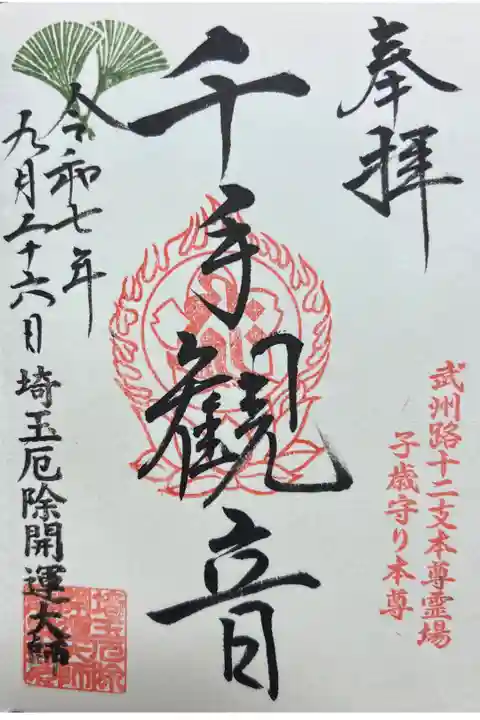 奉拝
武州路十二支本尊霊場
子歳守り本尊
千手観音
令和七年
九月二十六日
埼玉厄除開運大師